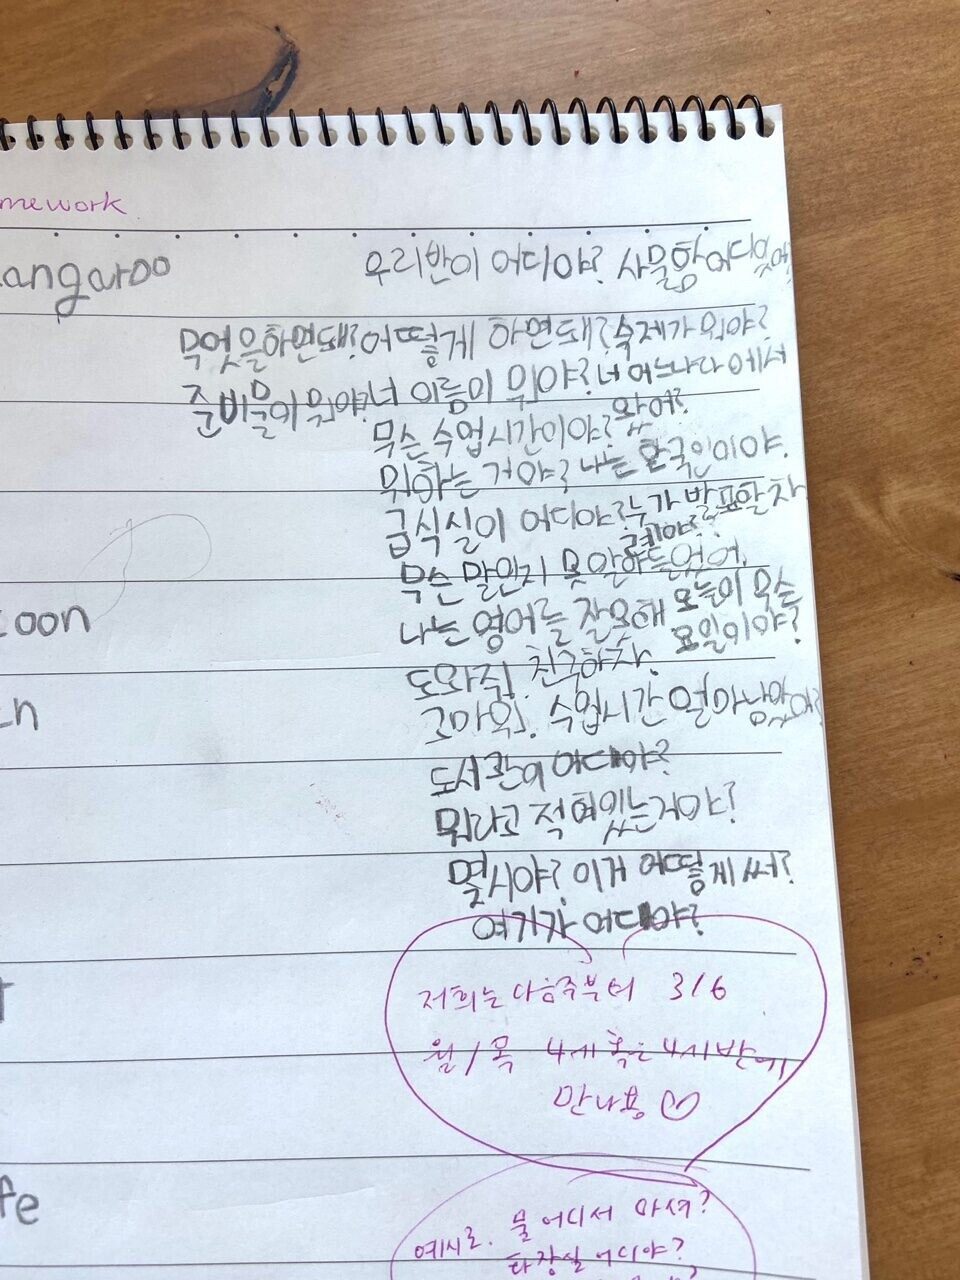 mework
angaroo 우리반이 어디야? 사물함어디있어?
무엇을하면돼? 어떻게 하면돼? 숙제가 뭐야?
준비물이 뭐야? 너 이름이 뭐야? 너 어느나라에서
왔어?
무슨 수업시간이야?
뭐하는 거야? 나는 한국인이야.
급식실이 어디야? 누가 발표할차
례야?
무슨 말인지 못알아듣겠어.
oon 나는 영어를 잘못해 오늘이 무슨
요일이야?
도와줘. 친구하자.
n 고마워. 수업시간 얼마나남았어?
도서관이 어디야?
뭐라고 적혀있는거야?
몇시야? 이거 어떻게써?
여기가 어디야?
저희는 다음주부터 3/6
월/목 4시 혹은 4시반에
만나용 ♡
fe
예시로. 물 어디서 마셔?
화장실 어디야?